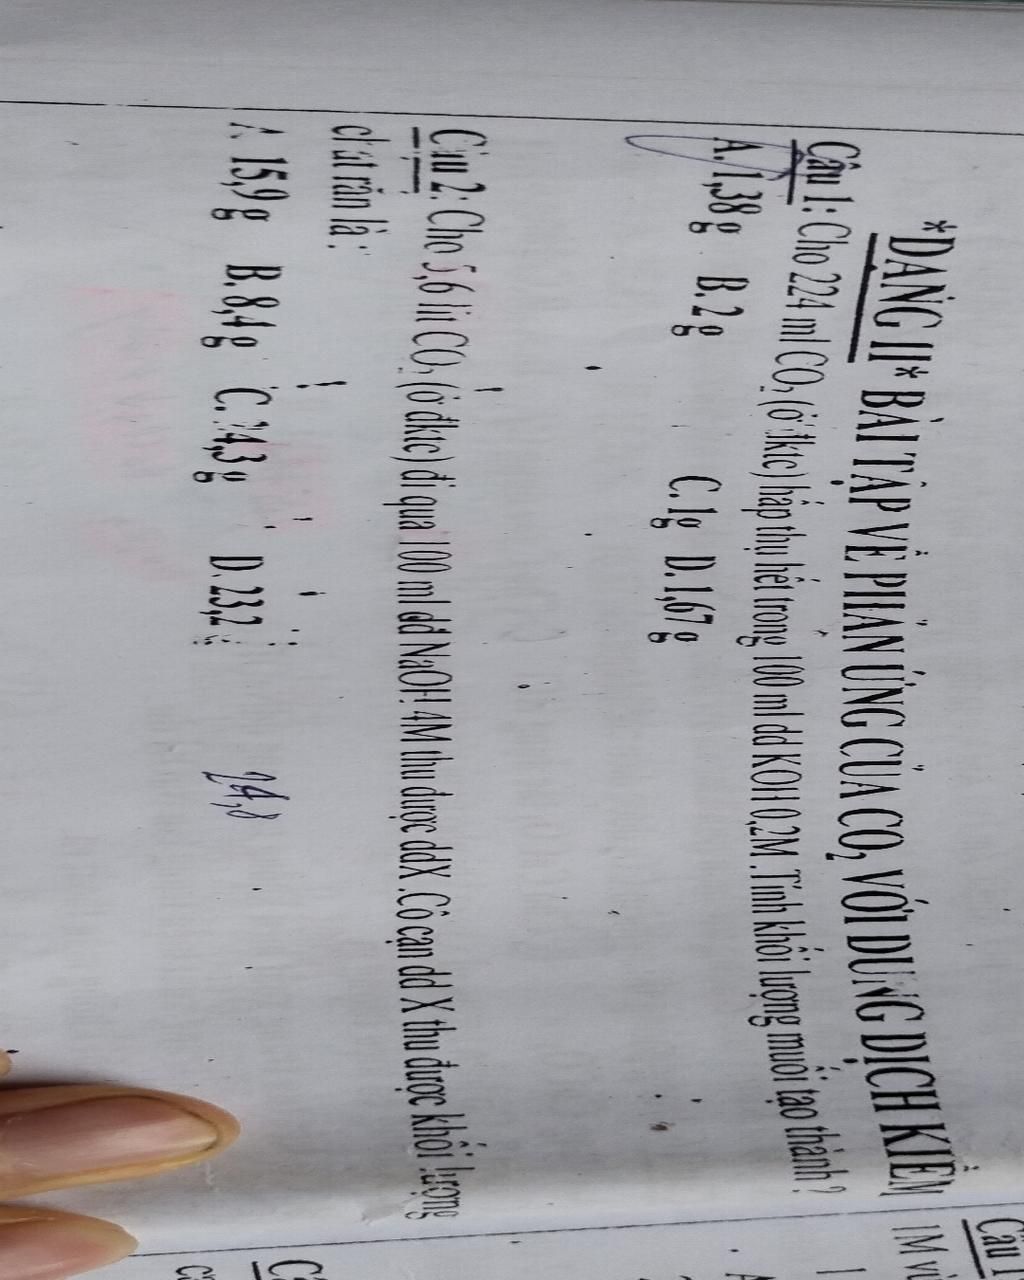 *DẠNG II* BÀI TẬP VỀ PHẢN ỨNG CỦA CO₂ VỚI DUNG DỊCH KIỀM
Câu 1: Cho 224 ml CO₂ (ở đktc) hấp thụ hết trong 100 ml dd KOH 0,2M. Tính khối lượng muối tạo thành ?
A. 1,38 g B. 2 g C. 1g D. 1,67 g
Câu 2: Cho 5,6 lít CO₂ (ở đktc) đi qua 100 ml dd NaOH 4M thu được ddX. Cô cạn dd X thu được khối lượng
chất rắn là:
A. 15,9 g B. 8,4 g C. 24,3 g D. 23,2
24,8
Câu 1